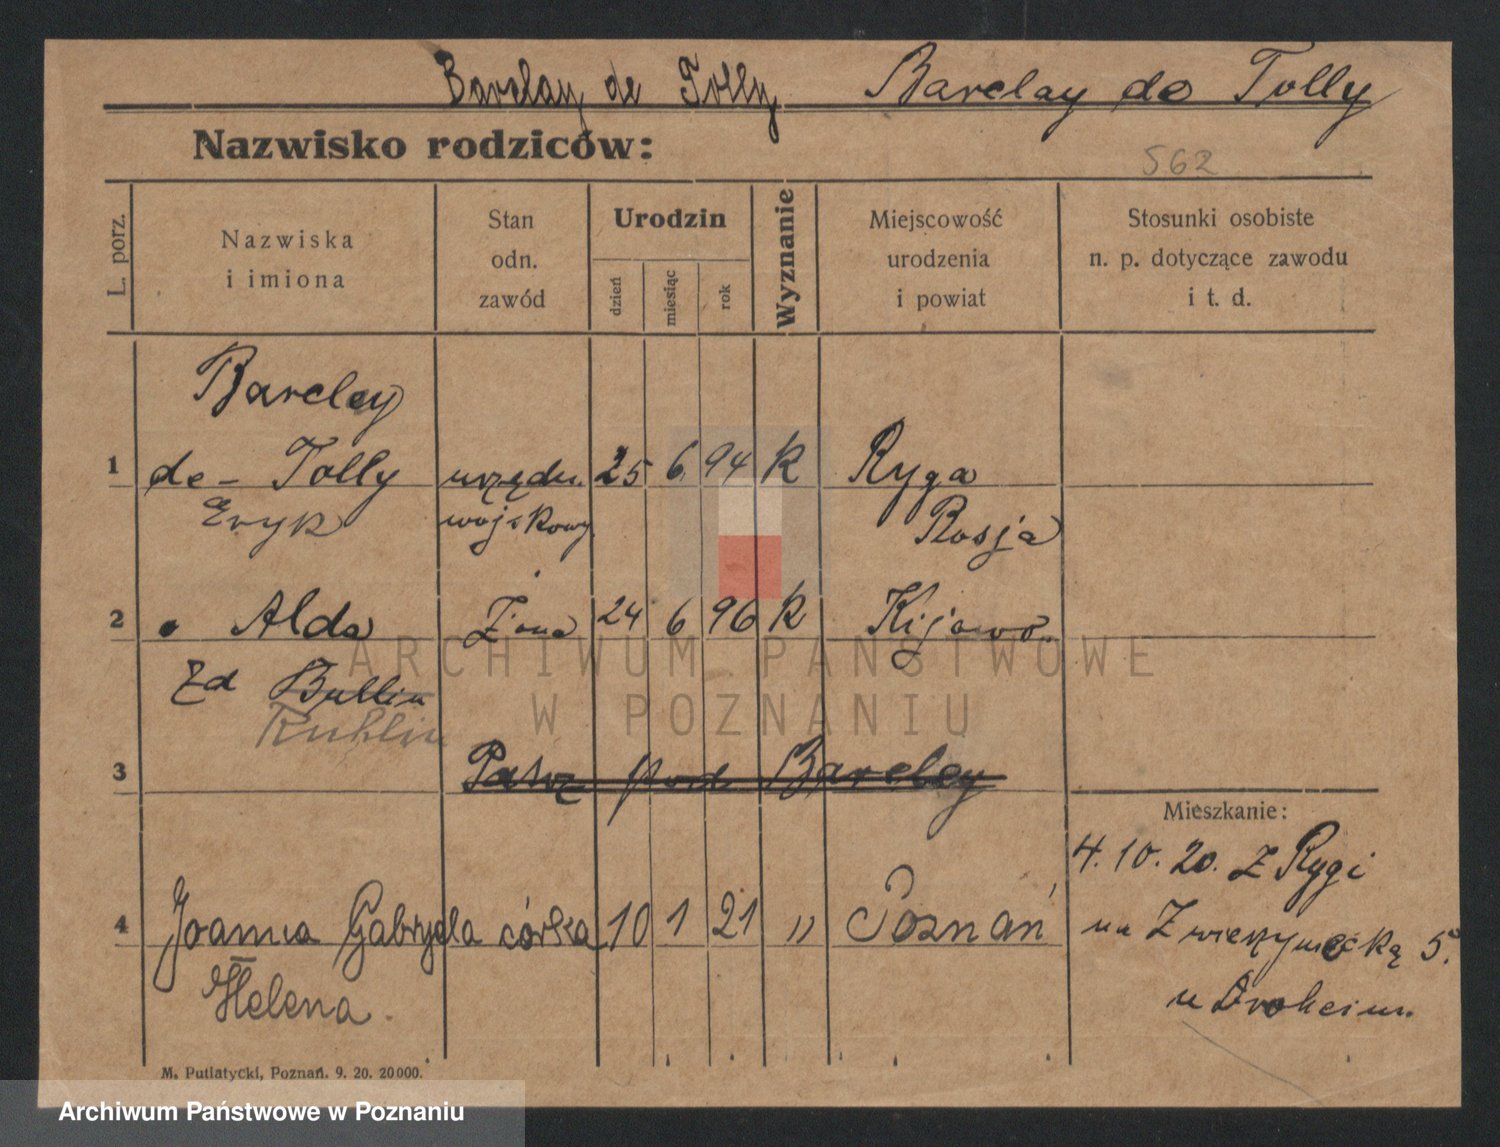 Barclay de Tolly Barclay de Tolly
Nazwisko rodziców:
562
L. porz.
Nazwiska
i imiona
Stan
odn.
zawód
Urodzin
dzień
miesiąc
rok
Wyznanie
Miejscowość
urodzenia
i powiat
Stosunki osobiste
n. p. dotyczące zawodu
i t. d.
Barclay
1 de - Tolly urzędn. 25 6 94 k Ryga
Eryk wojskowy Rosja
2 Alda Żona 24 6 96 k
Zd
3 pod Barclay
Mieszkanie:
4. 10. 20. z Rygi
4 Joanna Gabryela córka 10 1 21 " Poznań
na Zwierzyniecką 5.
Helena.
u
M. Putiatycki, Poznań. 9. 20. 20000.
ARCHIWUM PAŃSTWOWE
W POZNANIU
Archiwum Państwowe w Poznaniu